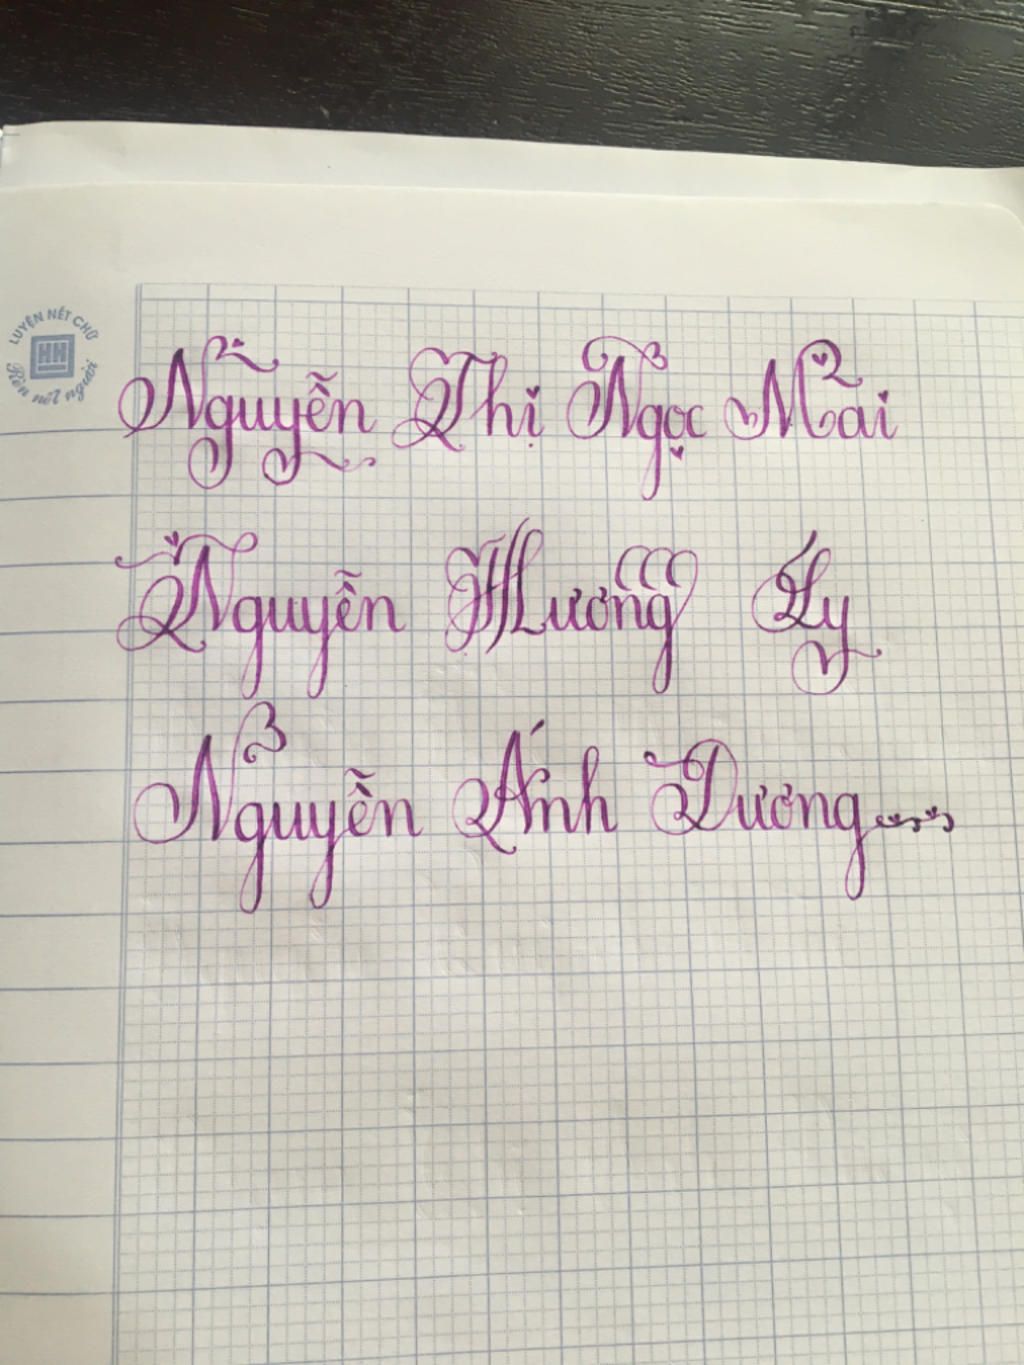 LUYỆN NÉT CHỮ
HH
Rèn nết người
Nguyễn Thị Ngọc Mai
Nguyễn Hương Ly
Nguyễn Ánh Dương